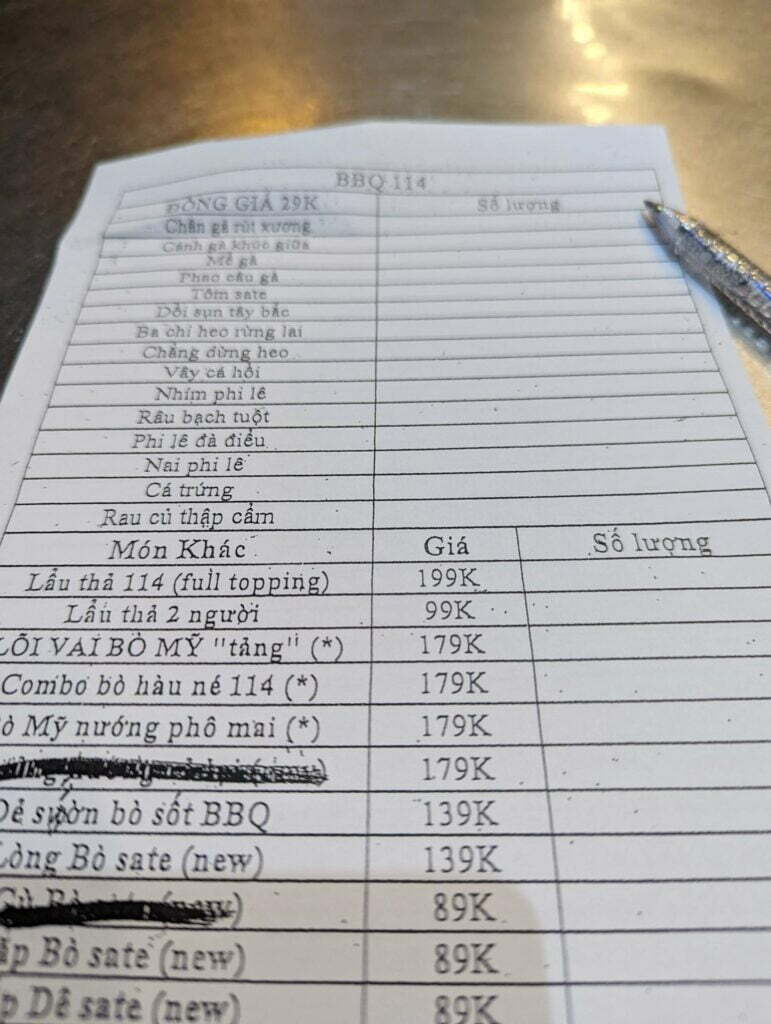 BBQ 114
ĐỒNG GIÁ 29K Số lượng
Chân gà rút xương
Cánh gà khúc giữa
Mề gà
Phao câu gà
Tôm sate
Dồi sụn tây bắc
Ba chỉ heo rừng lai
Chằng dừng heo
Vây cá hồi
Nhím phi lê
Râu bạch tuột
Phi lê đà điểu
Nai phi lê
Cá trứng
Rau củ thập cẩm
Món Khác Giá Số lượng
Lẩu thả 114 (full topping) 199K
Lẩu thả 2 người 99K
LÕI VAI BÒ MỸ "tảng" (*) 179K
Combo bò hàu né 114 (*) 179K
Mỹ nướng phô mai (*) 179K
179K
Dẻ sườn bò sốt BBQ 139K
Lòng Bò sate (new) 139K
89K
Bò sate (new) 89K
Dê sate (new) 89K